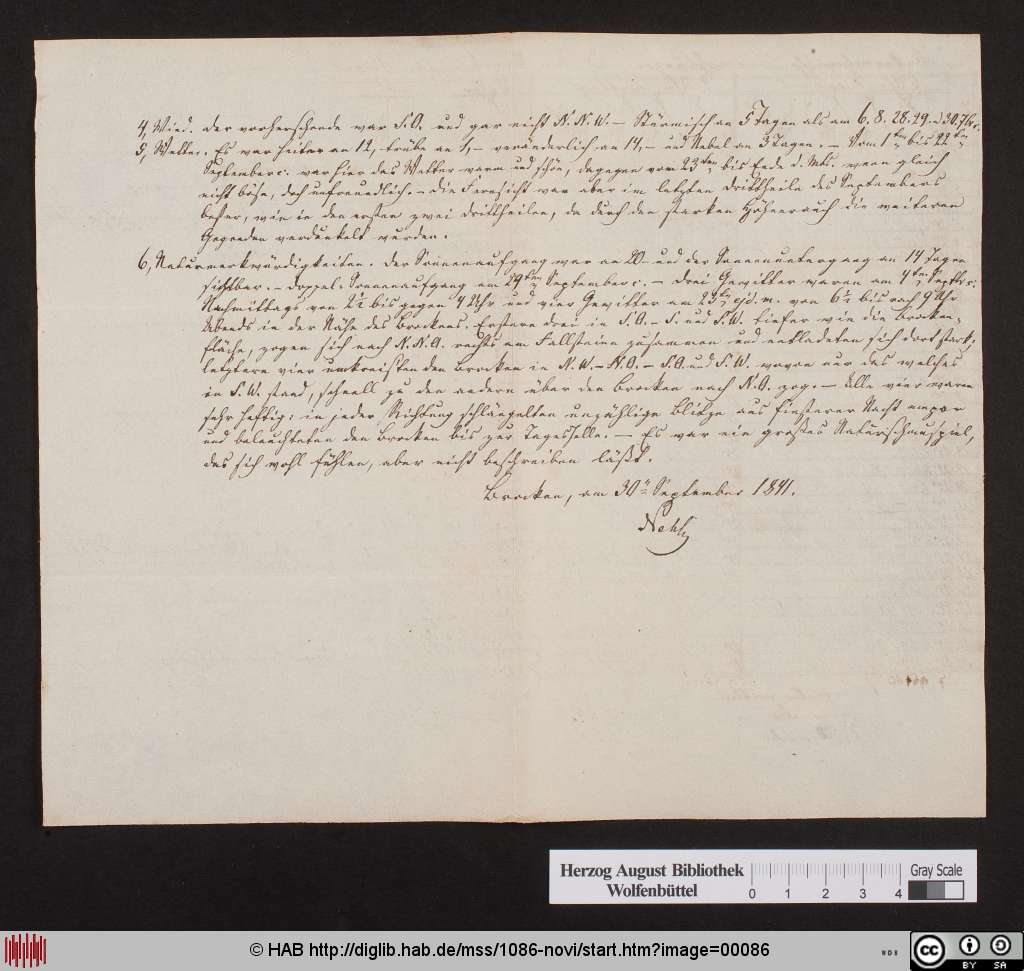 4, Wind. Der vorherschende war S.O. und gar nicht N.N.W. – Stürmisch an 5 Tagen als am 6. 8. 28. 29. u 30. 7br.
5, Wetter. Es war heiter an 12, – trübe an 1, – veränderlich an 14, – und Nebel an 3 Tagen. – Vom 1ten bis 22ten
Septemberc: war hier das Wetter warm und schön, dagegen vom 23ten bis Ende d. Mts. wenn gleich
nicht böse, doch unfreundlich. – Die Fernsicht war aber im letzten Drittheile des Septembers
besser, wie in den ersten zwei Drittheilen, da durch den starken Höhenrauch die weiteren
Gegenden verdunkelt wurden.
6, Naturmerkwürdigkeiten. Der Sonnenaufgang war an 20 und der Sonnenuntergang an 14 Tagen
sichtbar. – Doppel-Sonnenaufgang am 29ten Septemberc. – Drei Gewitter waren am 4ten Septbrc:
Nachmittags von 2½ bis gegen 4 Uhr und vier Gewitter am ejd. m. von 6½ bis nach 9 Uhr
Abends in der Nähe des Brockens. Erstere drei in S.O. – S. und S.W. tiefer wie die Brocken-
fläche, zogen sich nach N.N.O. rechts am Fallsteine zusammen und entladeten sich dort stark;
letztere vier umkreisten den Brocken in N.W. – N.O. – S.O. und S.W. wovon nur das welches
in S.W. stand, schnell zu den andern über den Brocken nach N.O. zog. – Alle vier waren
sehr heftig: in jeder Richtung schlängelten unzählige Blitze aus finsterer Nacht empor
und beleuchteten den Brocken bis zur Tageshelle. – Es war ein großes Naturschauspiel,
das sich wohl fühlen, aber nicht beschreiben läßt.
Brocken, am 30n September 1841.
Nehse
Herzog August Bibliothek
Wolfenbüttel
0 1 2 3 4
Gray Scale
© HAB http://diglib.hab.de/mss/1086-novi/start.htm?image=00086
WDB
cc BY SA